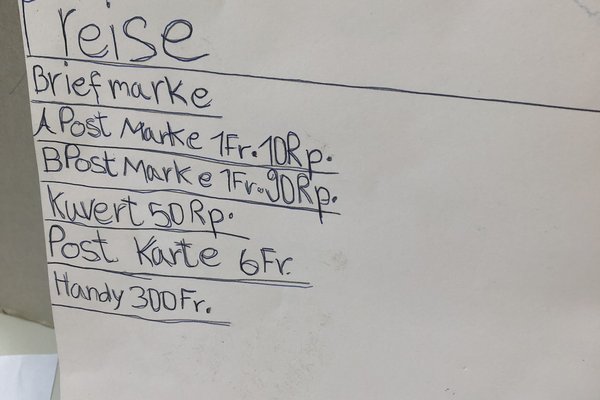 Preise
Briefmarke
A Post Marke 1Fr. 10Rp.
B Post Marke 1Fr. 90Rp.
Kuvert 50 Rp.
Post Karte 6 Fr.
Handy 300 Fr.